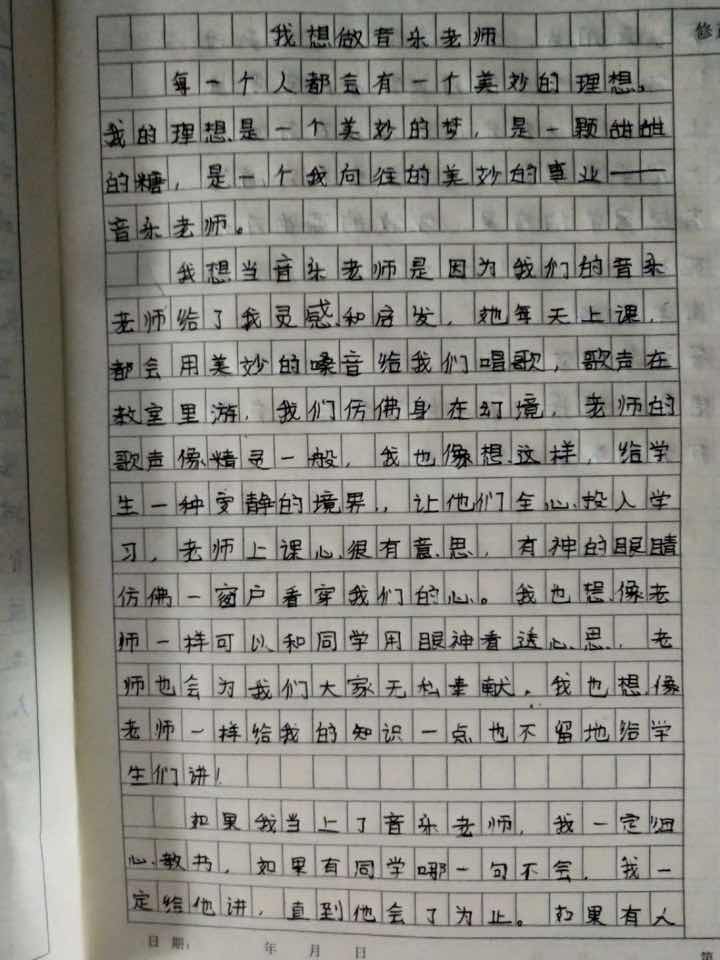 我想做音乐老师
每一个人都会有一个美妙的理想。
我的理想是一个美妙的梦，是一颗甜甜
的糖，是一个我向往的美妙的事业——
音乐老师。
我想当音乐老师是因为我们的音乐
老师给了我灵感和启发，她每天上课，
都会用美妙的嗓音给我们唱歌，歌声在
教室里游，我们仿佛身在幻境，老师的
歌声像精灵一般，我也像想这样，给学
生一种安静的境界，让他们全心投入学
习，老师上课心很有意思，有神的眼睛
仿佛一窗户看穿我们的心。我也想像老
师一样可以和同学用眼神看透心思，老
师也会为我们大家无私奉献，我也想像
老师一样给我的知识一点也不留地给学
生们讲！
如果我当上了音乐老师，我一定细
心教书，如果有同学哪一句不会，我一
定给他讲，直到他会了为止。如果有人
日期： 年 月 日
第